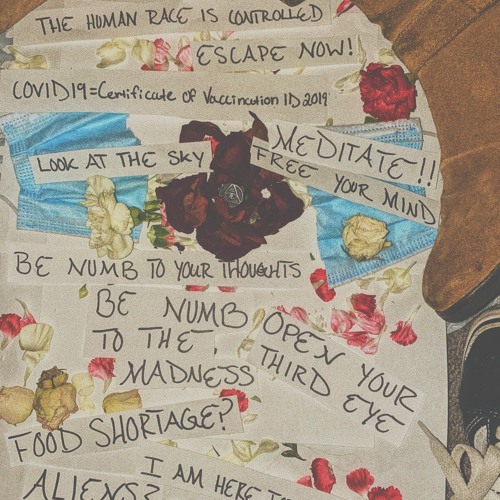 THE HUMAN RACE IS CONTROLLED
ESCAPE NOW!
COVID19=Certificate Of Vaccination ID 2019
MEDITATE!!
LOOK AT THE SKY
FREE YOUR MIND
BE NUMB TO YOUR THOUGHTS
BE NUMB
TO THE
MADNESS
OPEN YOUR
THIRD EYE
FOOD SHORTAGE?
I AM HERE
ALIENS?